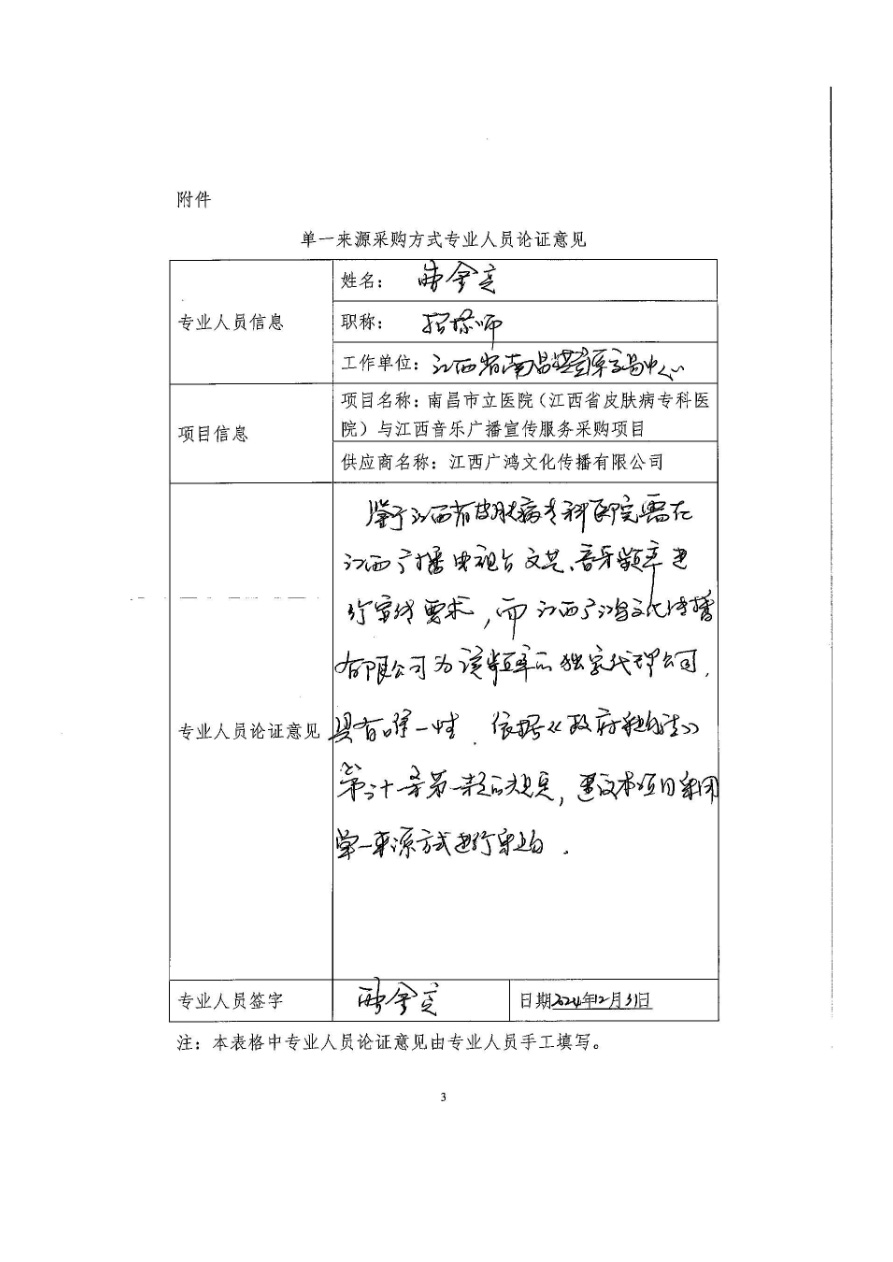 附件
单一来源采购方式专业人员论证意见
专业人员信息
姓名：
职称： 招标师
工作单位：江西省南昌公共资源交易中心
项目信息
项目名称：南昌市立医院（江西省皮肤病专科医
院）与江西音乐广播宣传服务采购项目
供应商名称：江西广鸿文化传播有限公司
专业人员论证意见
鉴于江西省皮肤病专科医院需在
江西广播电视台文艺、音乐频率进
行宣传要求，而江西广鸿文化传播
有限公司为该频率的独家代理公司，
具有唯一性．依据《政府采购法》
第三十一条第一款的规定，建议本项目采用
单一来源方式进行采购．
专业人员签字
日期2024年12月31日
注：本表格中专业人员论证意见由专业人员手工填写。
3